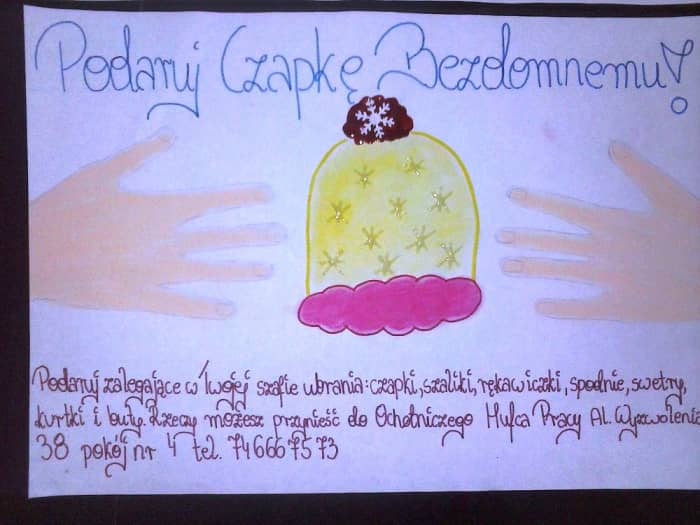 Podaruj Czapkę Bezdomnemu!
Podaruj zalegające w Twojej szafie ubrania: czapki, szaliki, rękawiczki, spodnie, swetry,
kurtki i buty. Rzeczy możesz przynieść do Ochotniczego Hufca Pracy Al. Wyzwolenia
38 pokój nr 4 tel. 746667573